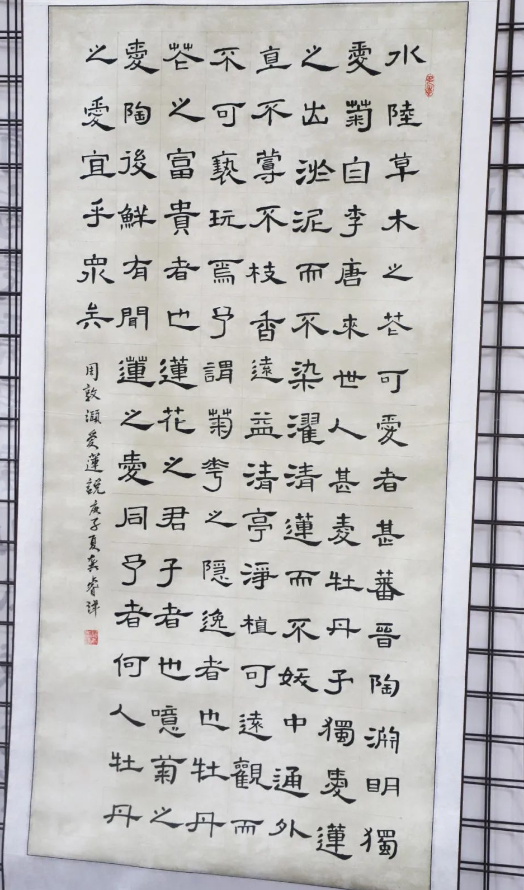 水陸草木之芲可愛者甚蕃晉陶淵明獨
愛菊自李唐來世人甚愛牡丹予獨愛蓮
之出淤泥而不染濯清蓮而不妖中通外
直不蔓不枝香遠益清亭淨植可遠觀而
不可褻玩焉予謂菊華之隱逸者也牡丹
芲之富貴者也蓮花之君子者也噫菊之
愛陶後鮮有聞蓮之愛同予者何人牡丹
之愛宜乎眾矣
周敦頤愛蓮說庚子夏